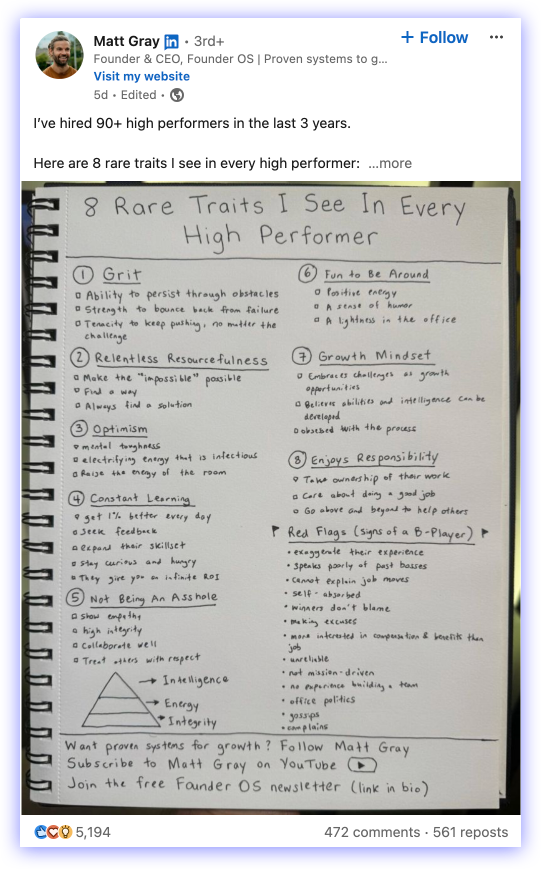 Matt Gray in • 3rd+
+ Follow
Founder & CEO, Founder OS | Proven systems to g...
Visit my website
5d • Edited •
I've hired 90+ high performers in the last 3 years.
Here are 8 rare traits I see in every high performer: ...more
8 Rare Traits I See In Every
High Performer
1 Grit
Ability to persist through obstacles
Strength to bounce back from failure
Tenacity to keep pushing, no matter the
challenge
2 Relentless Resourcefulness
Make the "impossible" possible
Find a way
Always find a solution
3 Optimism
mental toughness
electrifying energy that is infectious
Raise the energy of the room
4 Constant Learning
get 1% better every day
Seek feedback
expand their skillset
stay curious and hungry
They give you an infinite ROI
5 Not Being An Asshole
Show empathy
high integrity
Collaborate well
Treat others with respect
Intelligence
Energy
Integrity
6 Fun to Be Around
Positive energy
A sense of humor
A lightness in the office
7 Growth Mindset
Embraces challenges as growth
opportunities
Believes abilities and intelligence can be
developed
obsessed with the process
8 Enjoys Responsibility
Take ownership of their work
Care about doing a good job
Go above and beyond to help others
Red Flags (signs of a B-Player)
• exaggerate their experience
• speaks poorly of past bosses
• cannot explain job moves
• self-absorbed
• winners don't blame
• making excuses
• more interested in compensation & benefits than
job
• unreliable
• not mission-driven
• no experience building a team
• office politics
• gossips
• complains
Want proven systems for growth? Follow Matt Gray
Subscribe to Matt Gray on YouTube
Join the free Founder OS newsletter (link in bio)
5,194
472 comments • 561 reposts